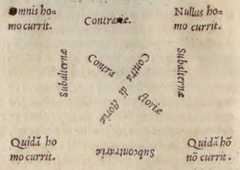 Omnis ho-
mo currit.
Contrariæ.
Nullus ho-
mo currit.
Subalternæ
Contra
Contra
di
ctoriæ
ctoriæ
Subalternæ
Quidã ho
mo currit.
Subcontrariæ
Quidã hõ
nõ currit.